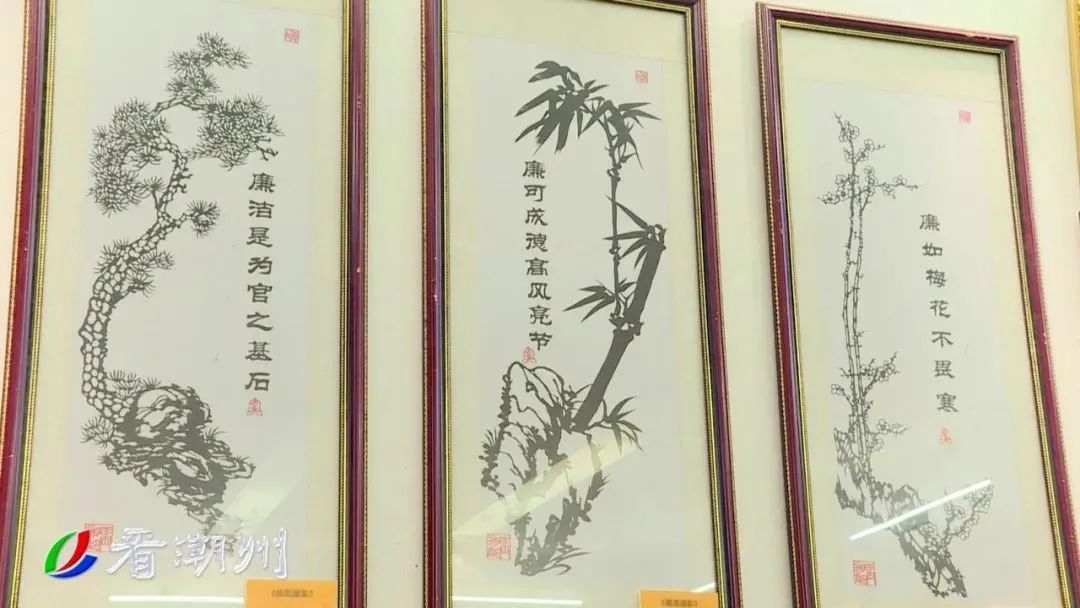 廉洁是为官之基石
廉可成德高风亮节
廉如梅花不畏寒
看潮州